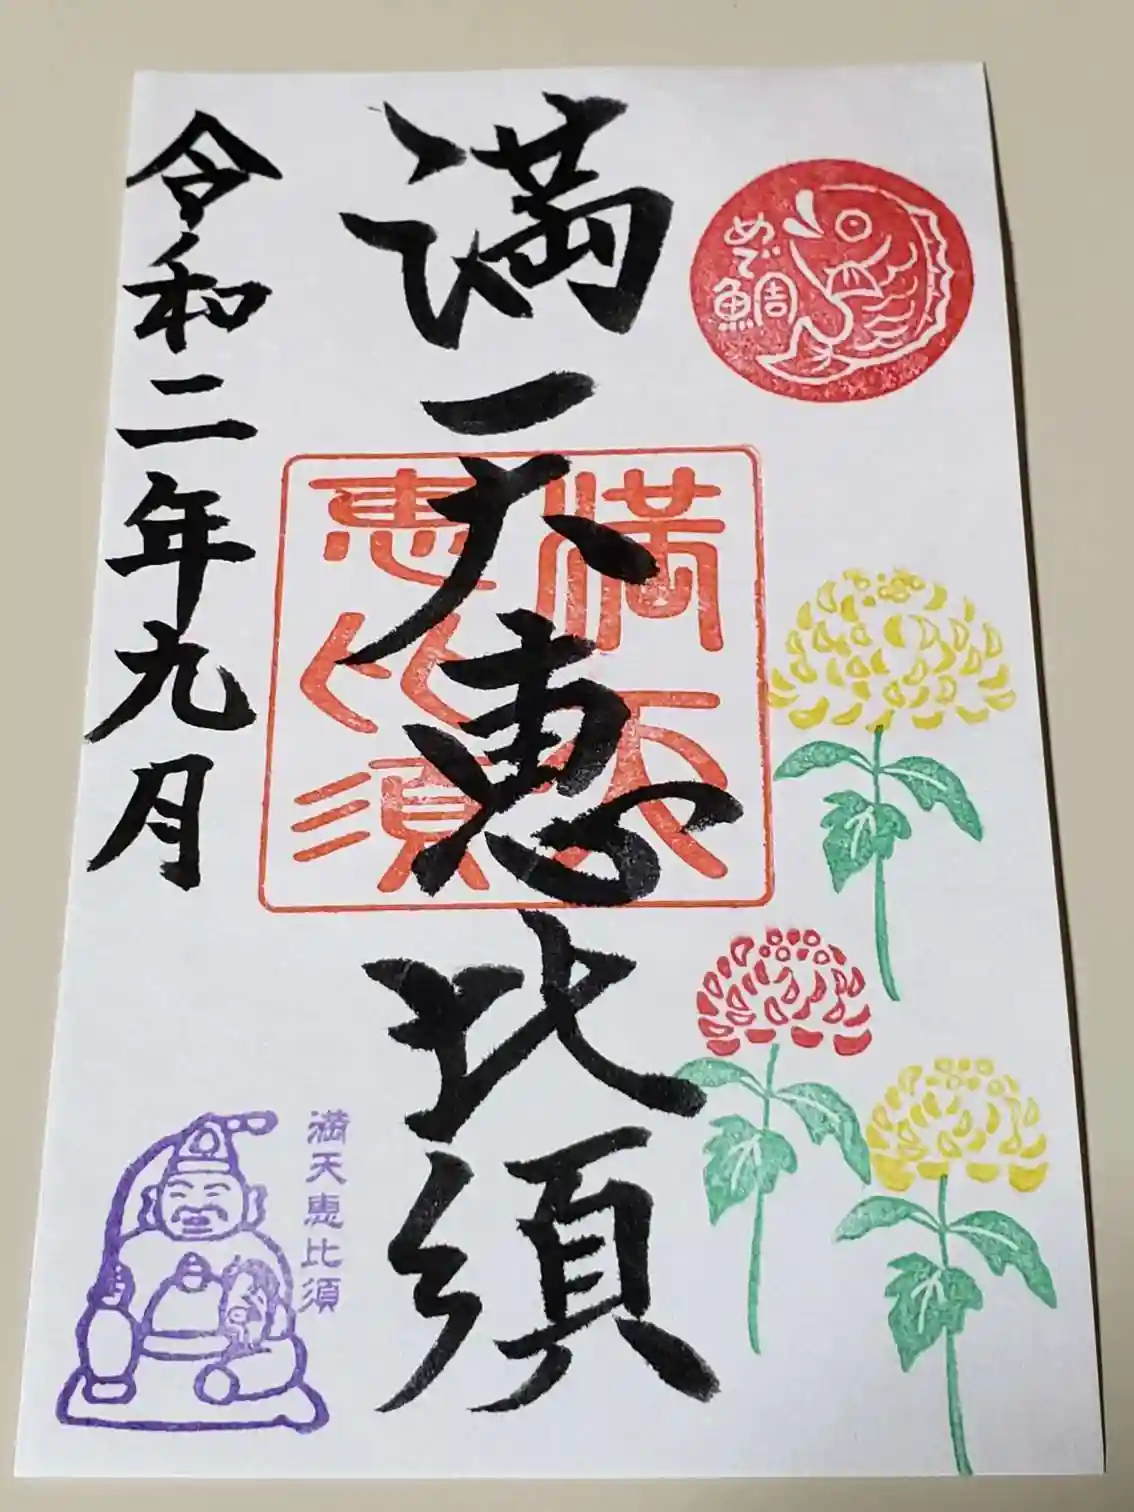 めで
鯛
満天恵比須
満天
恵比須
満天恵比須
令和二年九月